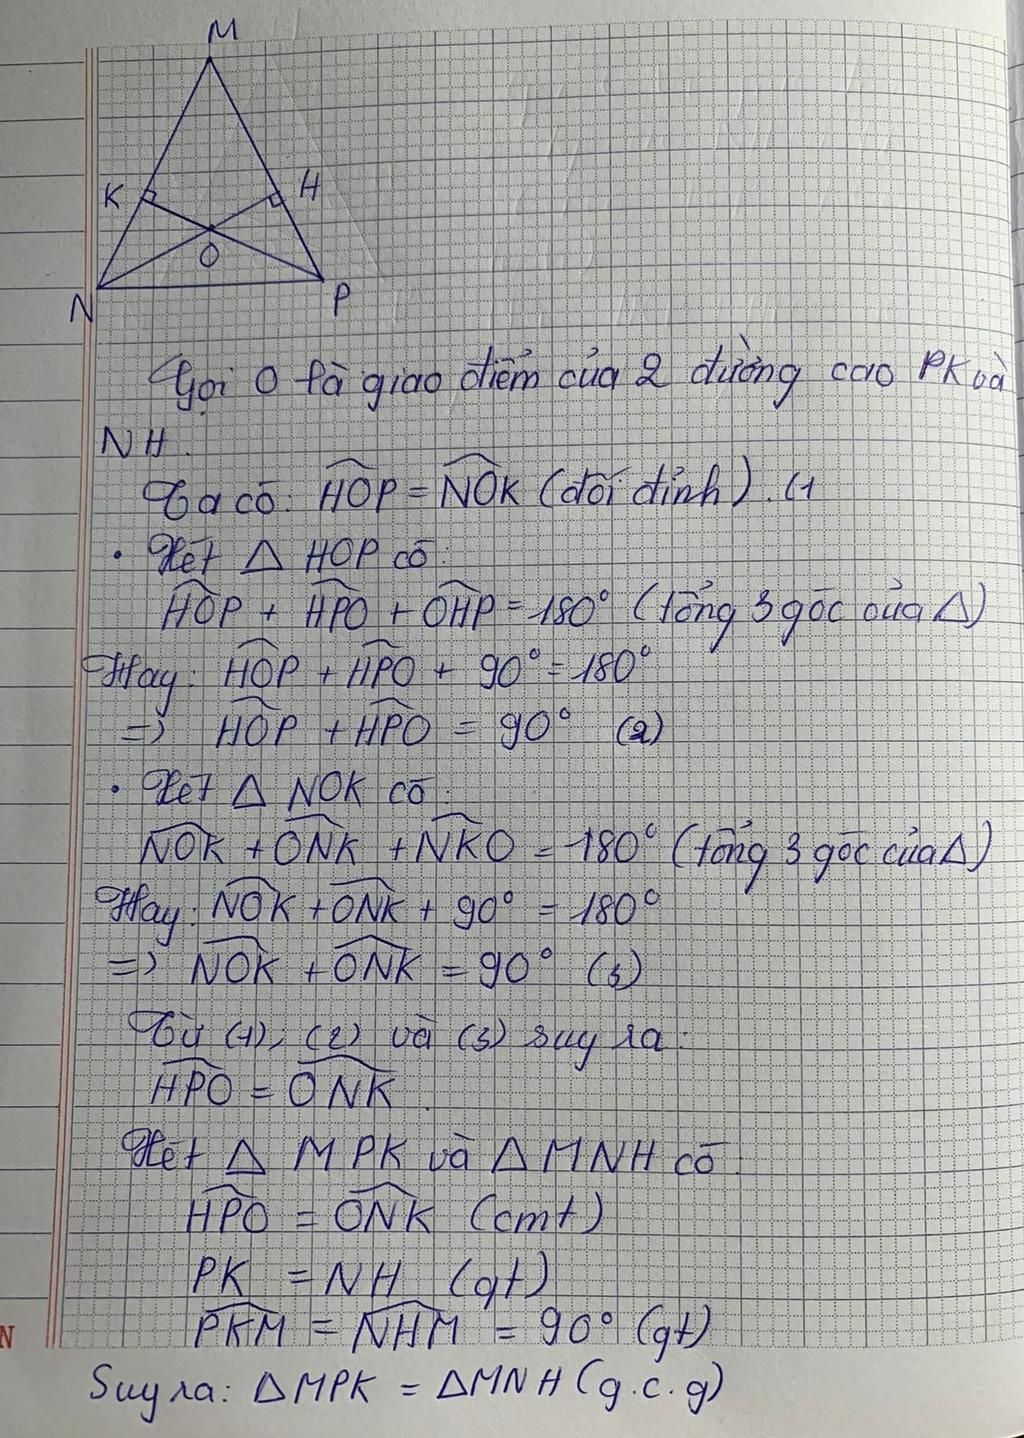 M
K
H
O
N
P
Gọi O là giao điểm của 2 đường cao PK và
NH.
Ta có: HOP = NOK (đối đỉnh). (1
• Xét △ HOP có:
HOP + HPO + OHP = 180° (tổng 3 góc của △)
Hay: HOP + HPO + 90° = 180°
=> HOP + HPO = 90° (2)
• Xét △ NOK có:
NOK + ONK + NKO = 180° (tổng 3 góc của △)
Hay: NOK + ONK + 90° = 180°
=> NOK + ONK = 90° (3)
Từ (1), (2) và (3) suy ra:
HPO = ONK.
Xét △ MPK và △ MNH có:
HPO = ONK (cmt)
PK = NH (gt)
PKM = NHM = 90° (gt)
N
Suy ra: △MPK = △MNH (g.c.g)